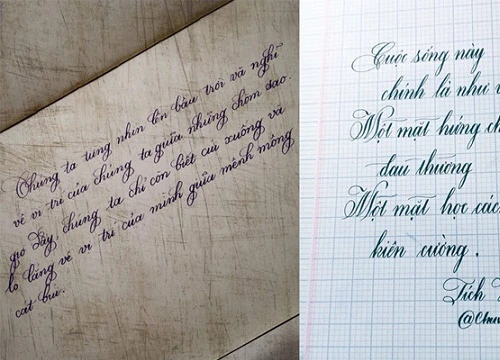 Chúng ta từng nhìn lên bầu trời và nghĩ
về vị trí của chúng ta giữa những chòm sao.
giờ đây chúng ta chỉ còn biết cúi xuống và
lo lắng về vị trí của mình giữa mênh mông
cát bụi.
Cuộc sống này
chính là như
Một mặt hứng
đau thương
Một mặt học
kiên cường.
Tích